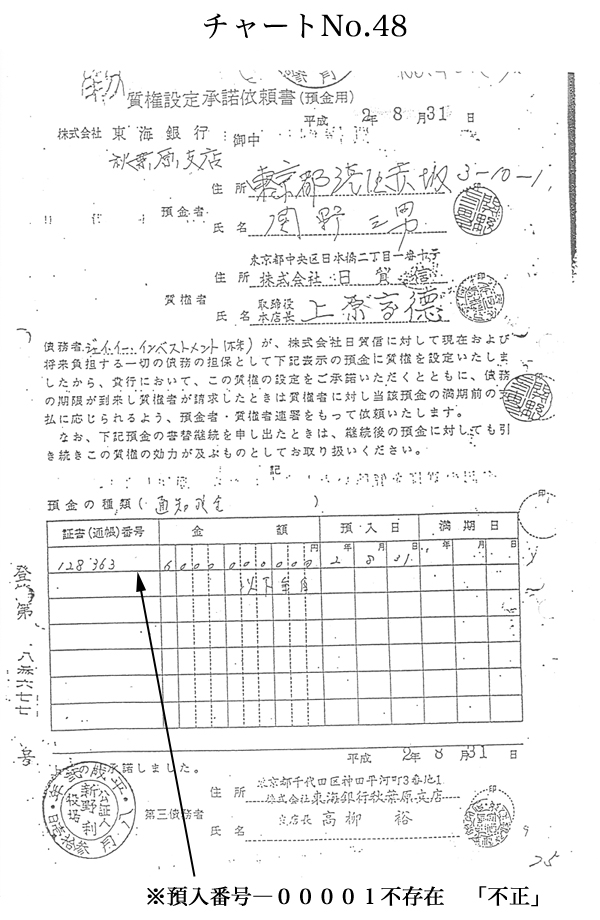 チャートNo.48
質権設定承諾依頼書(預金用)
平成 2年 8月31日
株式会社 東海銀行 御中
秋葉原支店
住所 東京都港区赤坂3-10-1
預金者
氏名 関野三男
東京都中央区日本橋二丁目一番十号
住所 株式会社 日貿信
質権者
氏名 取締役本店長 上原

債務者ジェイ・イー・インベストメント(株)が、株式会社日貿信に対して現在および
将来負担する一切の債務の担保として下記表示の預金に質権を設定いたしま
したから、貴行において、この質権の設定をご承諾いただくとともに、債務
の期限が到来し質権者が請求したときは質権者に対し当該預金の満期前の支
払に応じられるよう、預金者・質権者連署をもって依頼いたします。
なお、下記預金の書替継続を申し出たときは、継続後の預金に対しても引
き続きこの質権の効力が及ぶものとしてお取り扱いください。
記
預金の種類(通知預金)
証書(通帳)番号 金額 預入日 満期日
円 年 月 日 年 月 日
128363 6000000000 2 8 31
以下余白
登簿第 八弐六七七 号
平成 2年 8月31日
上記承諾しました。
住所 東京都千代田区神田平河町3番地1
株式会社東海銀行秋葉原支店
第三債務者
氏名 支店長 高柳 裕
公証人
新野利
役場
25
※預入番号―00001不存在 「不正」